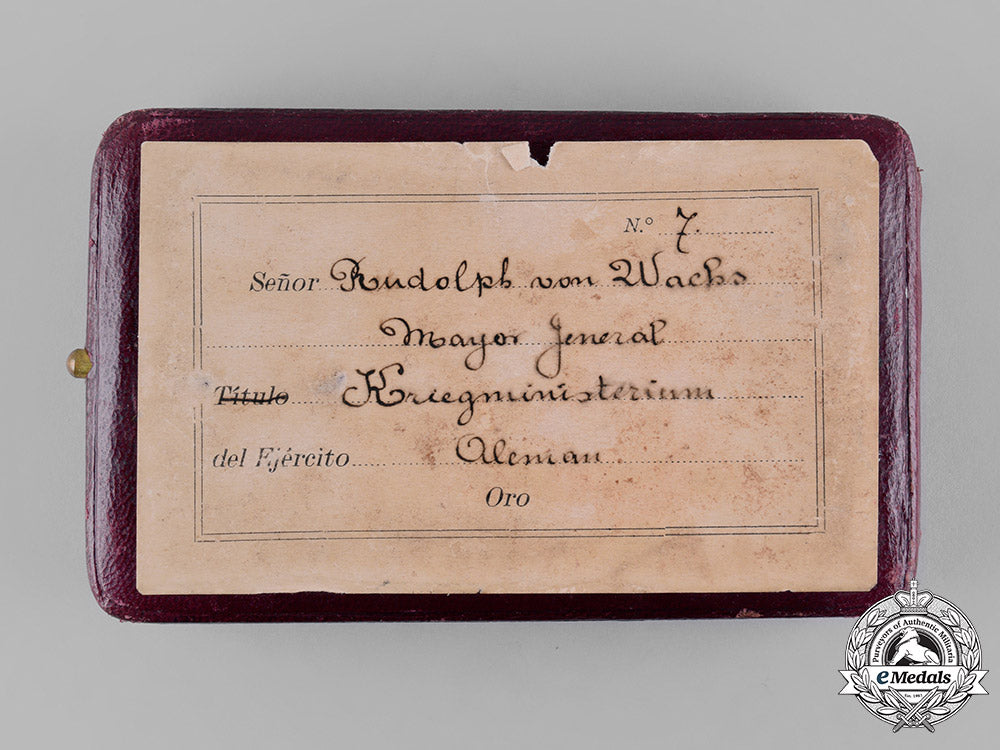 N.º 7.
Señor Rudolph von Wachs
Mayor Jeneral
Título Kriegministerium
del Ejército Aleman
Oro
Purveyors of Authentic Militaria
eMedals